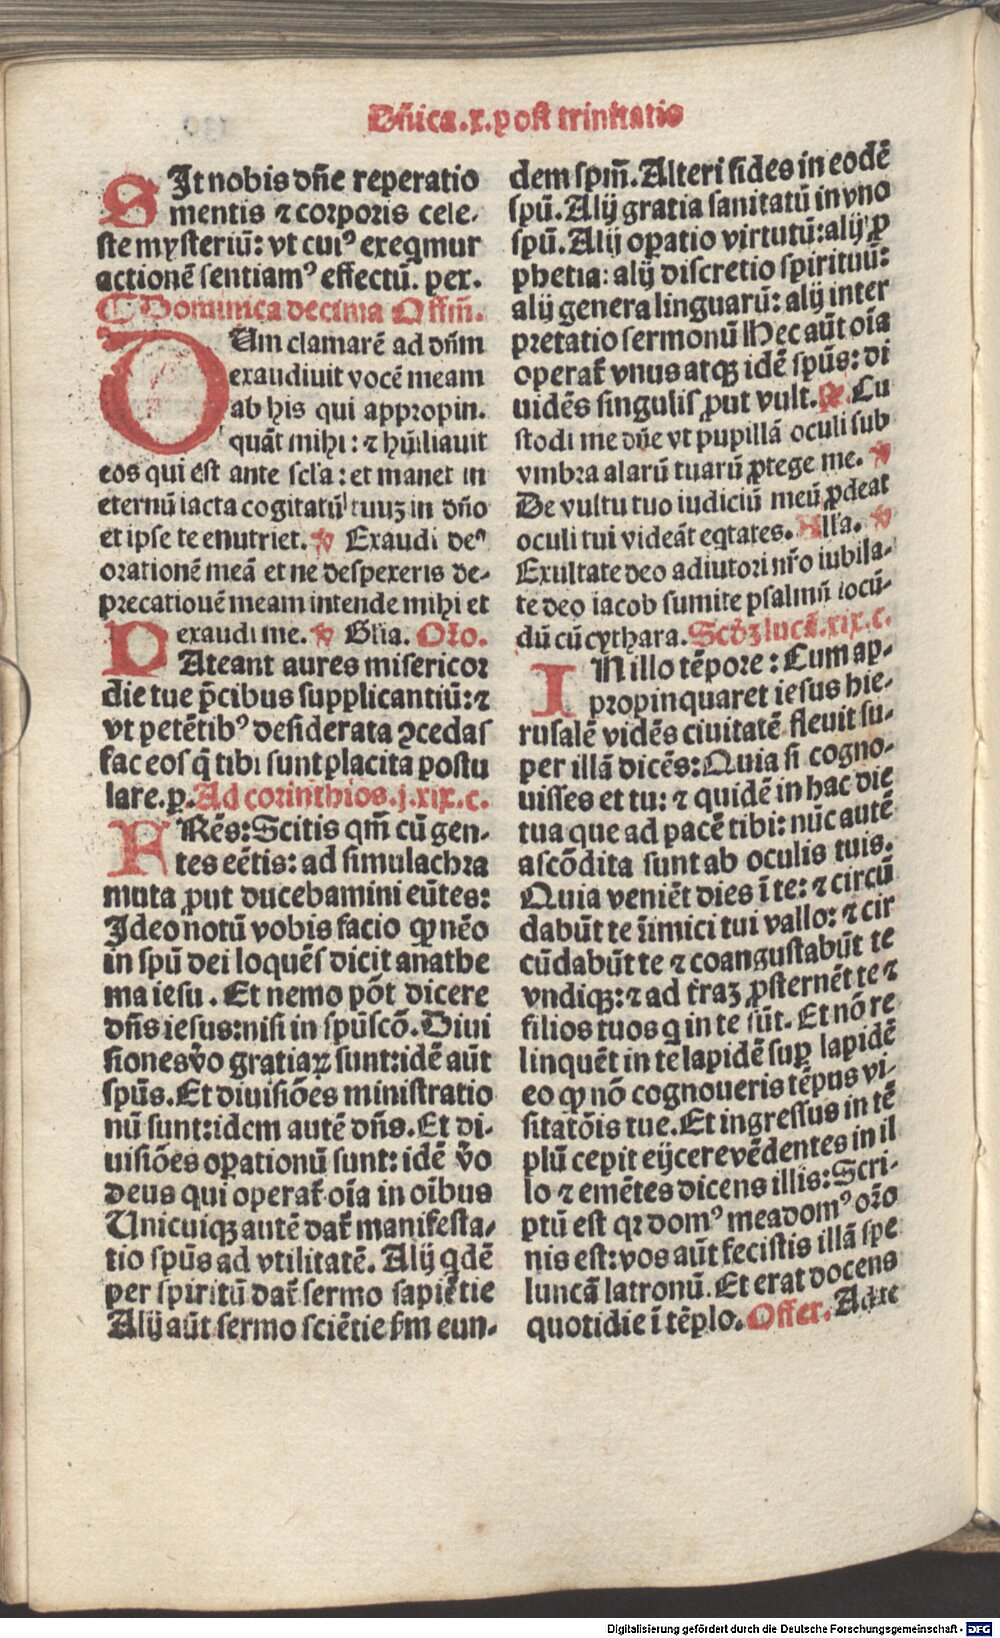 Dn̄ica.x.post trinitatis
SIt nobis dn̄e reperatio
mentis ⁊ corporis cele-
ste mysteriū: vt cuiꝰ exeqmur
actionē sentiamꝰ effectū. per.
¶ Dominica decima Offm̄.
DUm clamarē ad dn̄m
exaudiuit vocē meam
ab his qui appropin.
quāt mihi: ⁊ hūiliauit
eos qui est ante scl'a: et manet in
eternū iacta cogitatū tuuꝫ in dn̄o
et ipse te enutriet. ps Exaudi deꝰ
orationē meā et ne despexeris de-
precationē meam intende mihi et
exaudi me. ps Gl'ia. Or̄o.
PAteant aures misericor
die tue p̄cibus supplicantiū: ⁊
vt petētibꝰ desiderata ꝯcedas
fac eos q̄ tibi sunt placita postu
lare. p. Ad corinthios.j.xix.c.
FRēs: Scitis qm̄ cū gen-
tes eētis: ad simulachra
muta ꝓut ducebamini eūtes:
Ideo notū vobis facio ꝙ nēo
in spū dei loquēs dicit anathe
ma iesu. Et nemo pōt dicere
dn̄s iesus: nisi in spūscō. Diui
siones v̄o gratiaꝝ sunt: idē aūt
spūs. Et diuisiōes ministratio
nū sunt: idem autē dn̄s. Et di-
uisiōes oꝑationū sunt: idē v̄o
deus qui operat̄ oīa in oībus
Unicuiqꝫ autē dat̄ manifesta-
tio spūs ad vtilitatē. Alij qdē
per spiritū dat̄ sermo sapiētie
Alij aūt sermo sciētie ẜm eun-
dem spm̄. Alteri fides in eodē
spū. Alij gratia sanitatū in vno
spū. Alij oꝑatio virtutū: alij ꝓ
phetia: alij discretio spirituū:
alij genera linguarū: alij inter
pretatio sermonū Hec aūt oīa
operat̄ vnus atqꝫ idē spūs: di
uidēs singulis ꝓut vult. Gr. Cu
stodi me dn̄e vt pupillā oculi sub
vmbra alarū tuarū ꝓtege me. ℣
De vultu tuo iudiciū meū ꝓdeat
oculi tui videāt eqtates. All'a. ℣
Exultate deo adiutori nr̄o iubila-
te deo iacob sumite psalmū iocū-
dū cū cythara. Scd̄ꝫ lucā.xix.c.
IN illo tēpore: Cum ap-
propinquaret iesus hie-
rusalē vidēs ciuitatē fleuit su-
per illā dicēs: Quia si cogno-
uisses et tu: ⁊ quidē in hac die
tua que ad pacē tibi: nūc autē
ascōdita sunt ab oculis tuis.
Quia veniēt dies ī te: ⁊ circū
dabūt te īimici tui vallo: ⁊ cir
cūdabūt te ⁊ coangustabūt te
vndiqꝫ: ⁊ ad t̄raꝫ ꝓsternēt te ⁊
filios tuos q in te sūt. Et nō re
linquēt in te lapidē suꝑ lapidē
eo ꝙ nō cognoueris tēpus vi-
sitatōis tue. Et ingressus in tē
plū cepit eijcere vēdentes in il
lo ⁊ emētes dicens illis: Scri-
ptū est qꝛ domꝰ mea domꝰ or̄o
nis est: vos aūt fecistis illā spe
luncā latronū. Et erat docens
quotidie ī tēplo. Offer. Ad te
Digitalisierung gefördert durch die Deutsche Forschungsgemeinschaft - DFG